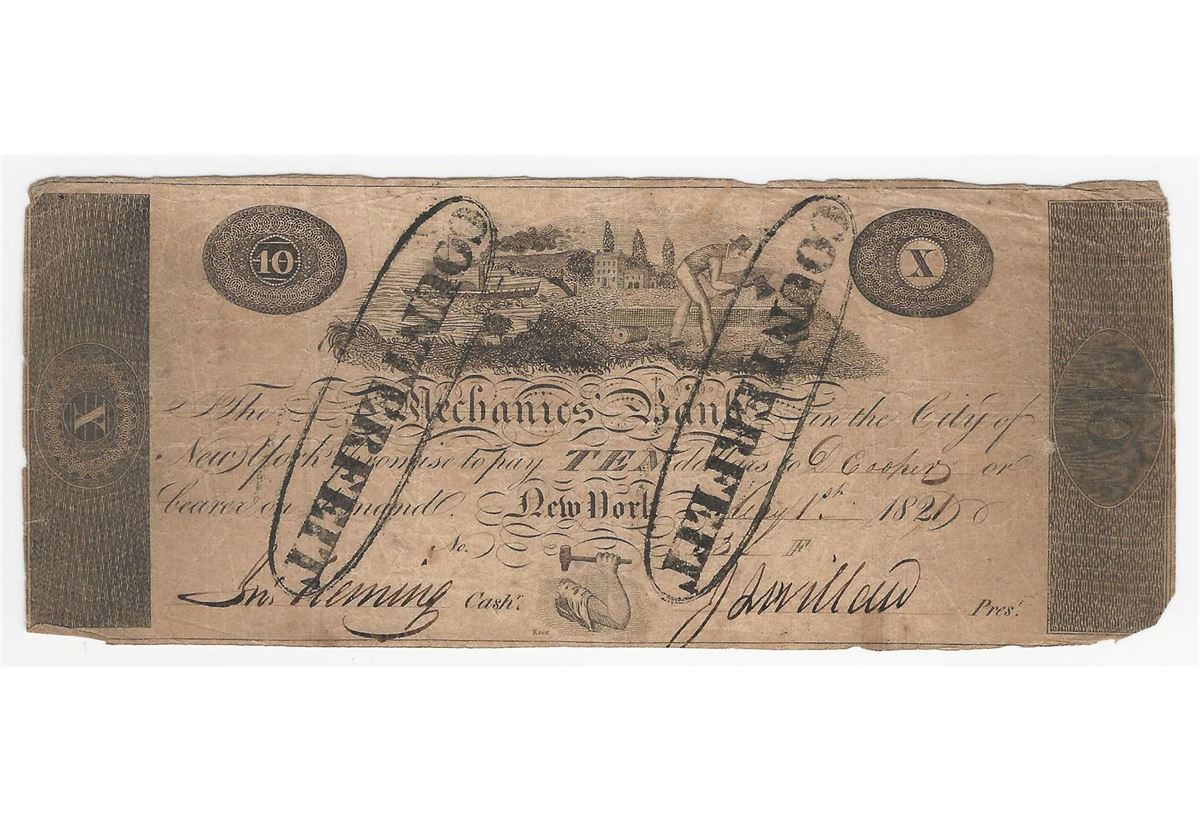 10
X
COUNTERFEIT
COUNTERFEIT
X
TEN
The Mechanics' Bank in the City of
New York promise to pay TEN dollars to D Cooper or
bearer on demand. New York May 1st 1821
No. F
Jno. Fleming Cashr. Prest.